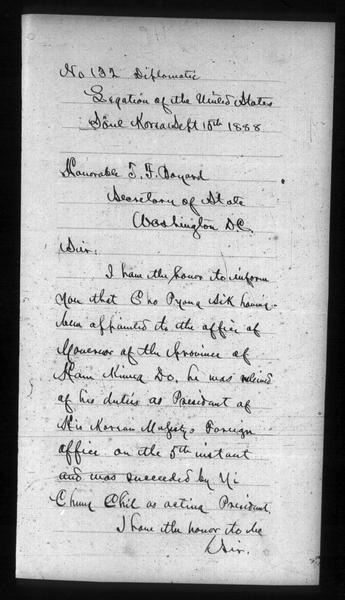 No 132 Diplomatic
Legation of the United States
Söul Korea Sept 10th 1888
Honorable T. F. Bayard
Secretary of State
Washington D.C.
Sir:
I have the honor to inform
you that Cho Pyong Sik having
been appointed to the office of
Governor of the Province of
Ham Kiung Do, he was relieved
of his duties as President of
His Korean Majesty's Foreign
office on the 5th instant
and was succeeded by Yi
Chung Chil as acting President.
I have the honor to be
Sir.